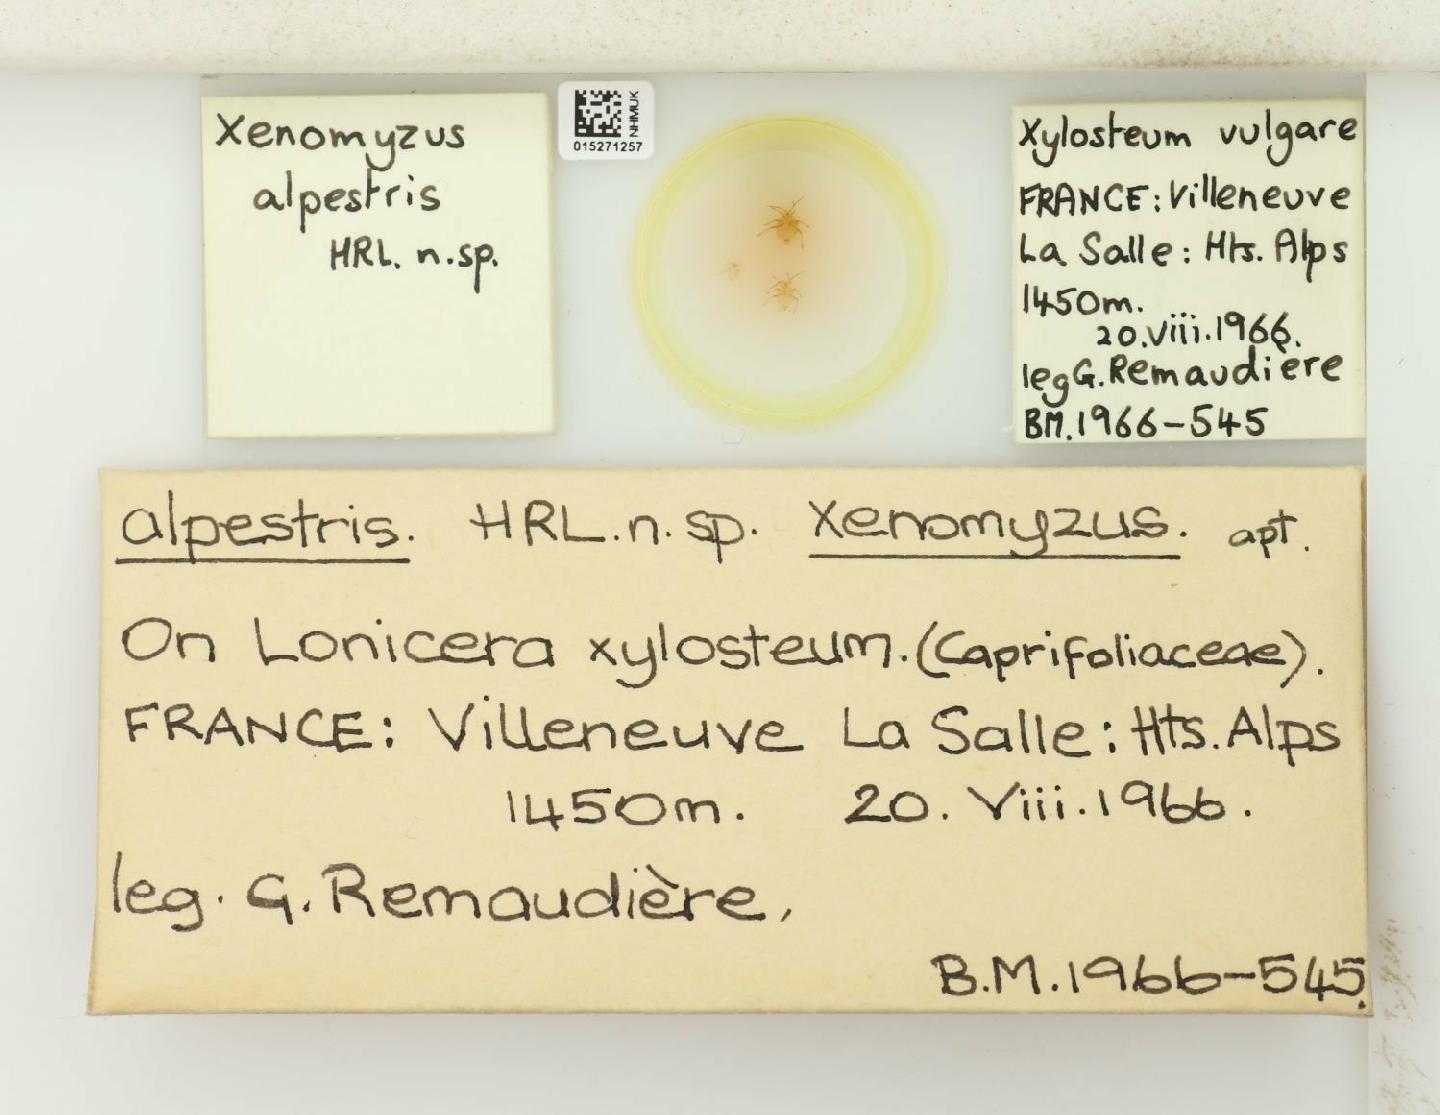 Xenomyzus
alpestris
HRL. n.sp.
NHMUK
015271257
Xylosteum vulgare
FRANCE: Villeneuve
La Salle: Hts. Alps
1450m.
20.viii.1966.
leg G. Remaudiere
BM.1966-545
alpestris. HRL. n. sp. Xenomyzus. apt.
On Lonicera xylosteum. (Caprifoliaceae).
FRANCE: Villeneuve La Salle: Hts. Alps
1450m. 20. Viii. 1966.
leg. G. Remaudière,
B.M. 1966-545.